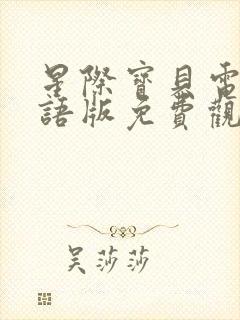 星際寶貝電
語版免費觀
吳莎莎